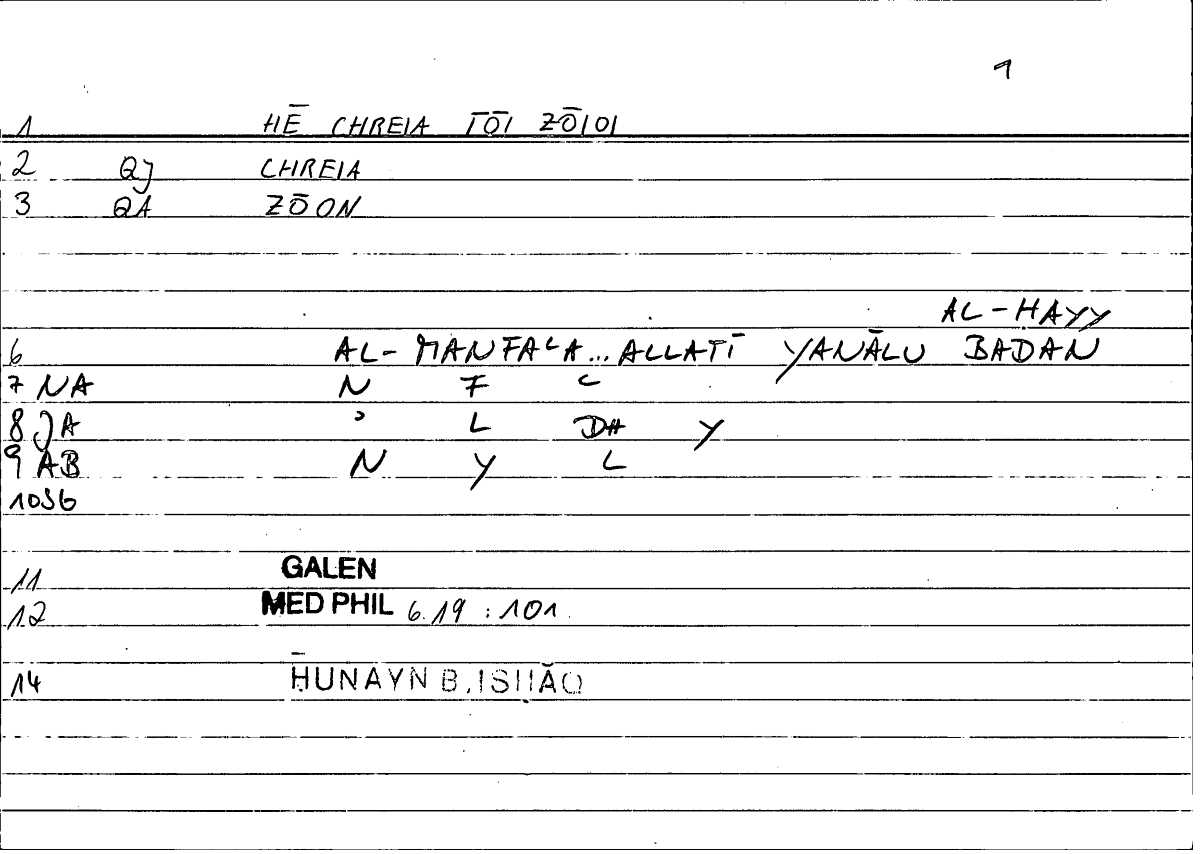 1
1 HĒ CHREIA TŌI ZŌIOI
2 QJ CHREIA
3 QA ZŌON
AL-HAYY
6 AL-MANFAʿA...ALLATĪ YANĀLU BADAN
7 NA N F ʿ
8 JA ʾ L DH Y
9 AB N Y L
10 SG
11 GALEN
12 MED PHIL 6.19 : 101.
14 ḤUNAYN B. ISḤĀQ